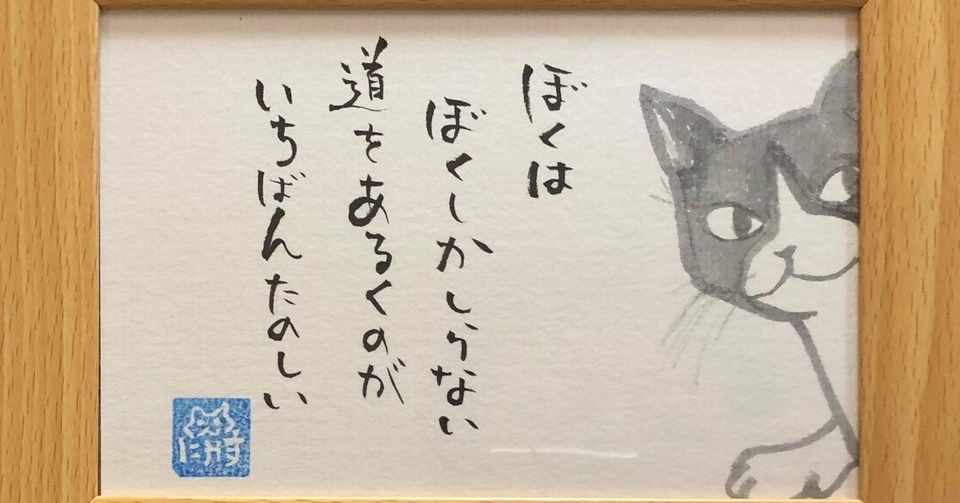 ぼくは
ぼくしかしらない
道をあるくのが
いちばんたのしい
にゃす